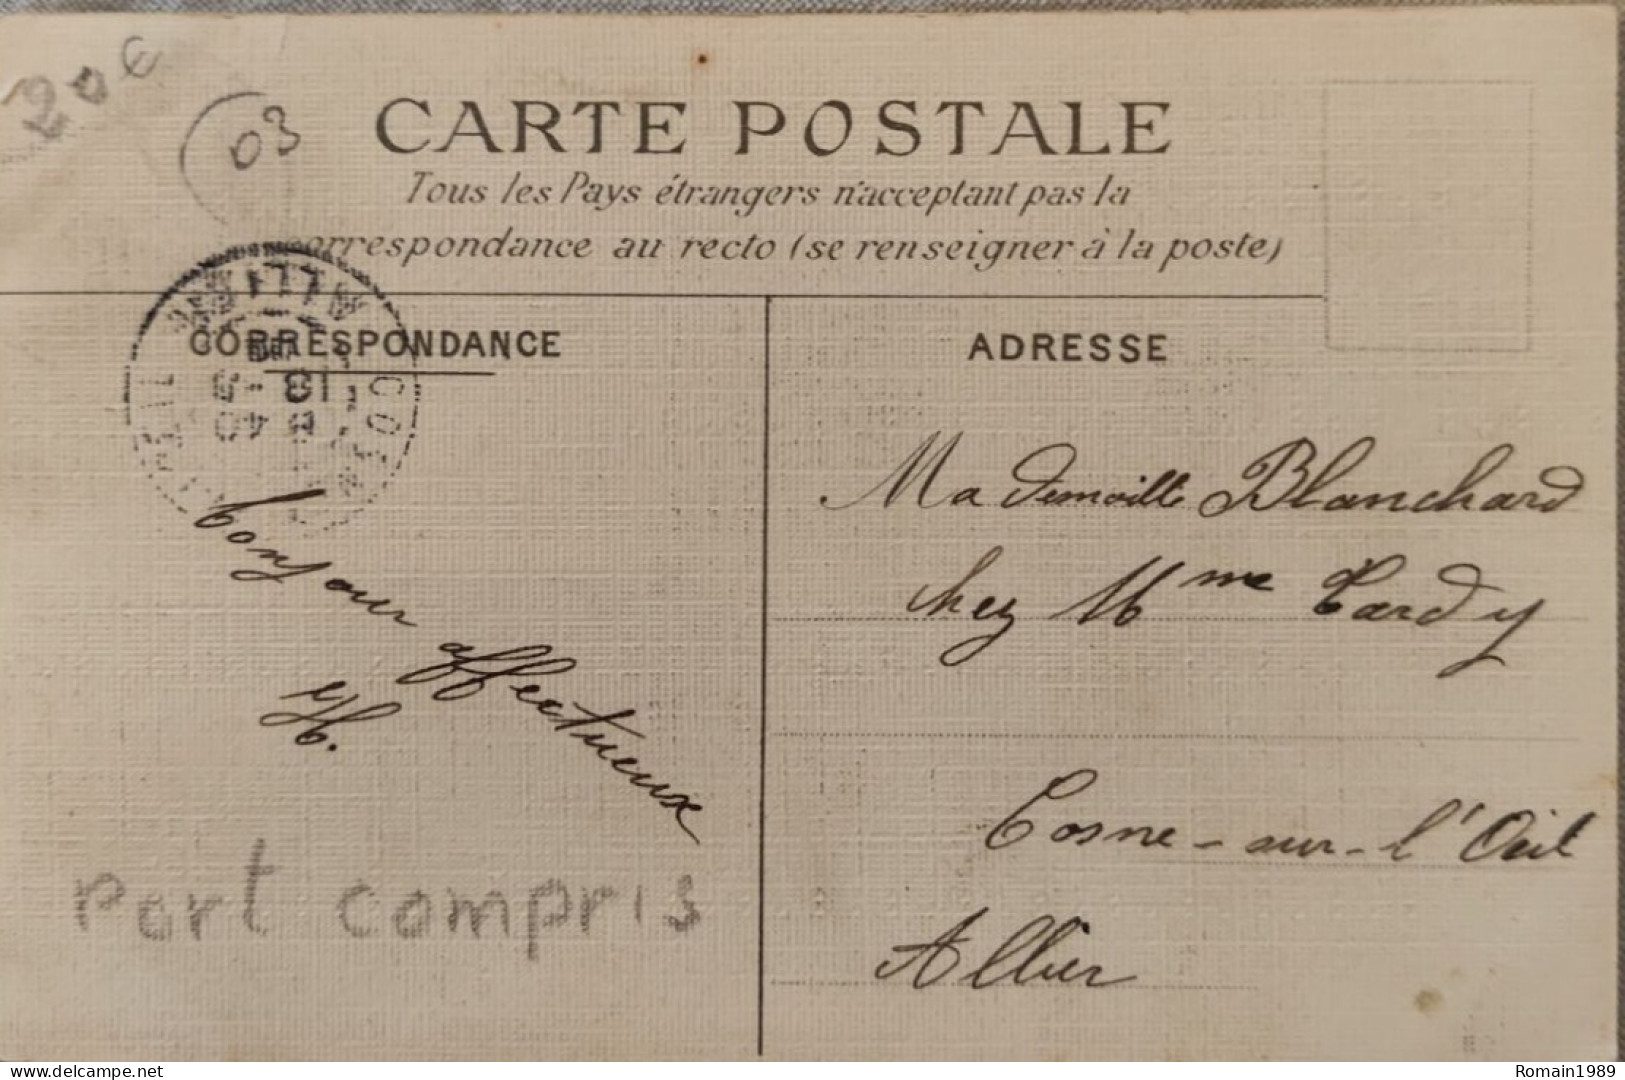 20 €
03
CARTE POSTALE
Tous les Pays étrangers n'acceptant pas la
correspondance au recto (se renseigner à la poste)
CORRESPONDANCE
bonjour affectueux
H.
port compris
ADRESSE
Mademoiselle Blanchard
chez Mme Tardy
Cosne-sur-l'Œil
Allier
delcampe.net
Romain1989